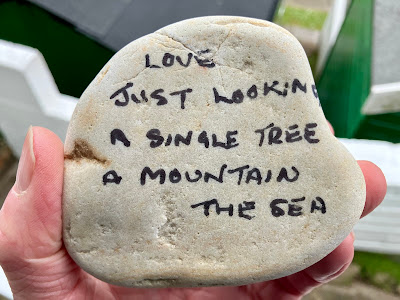 LOVE
JUST LOOKING
A SINGLE TREE
A MOUNTAIN
THE SEA